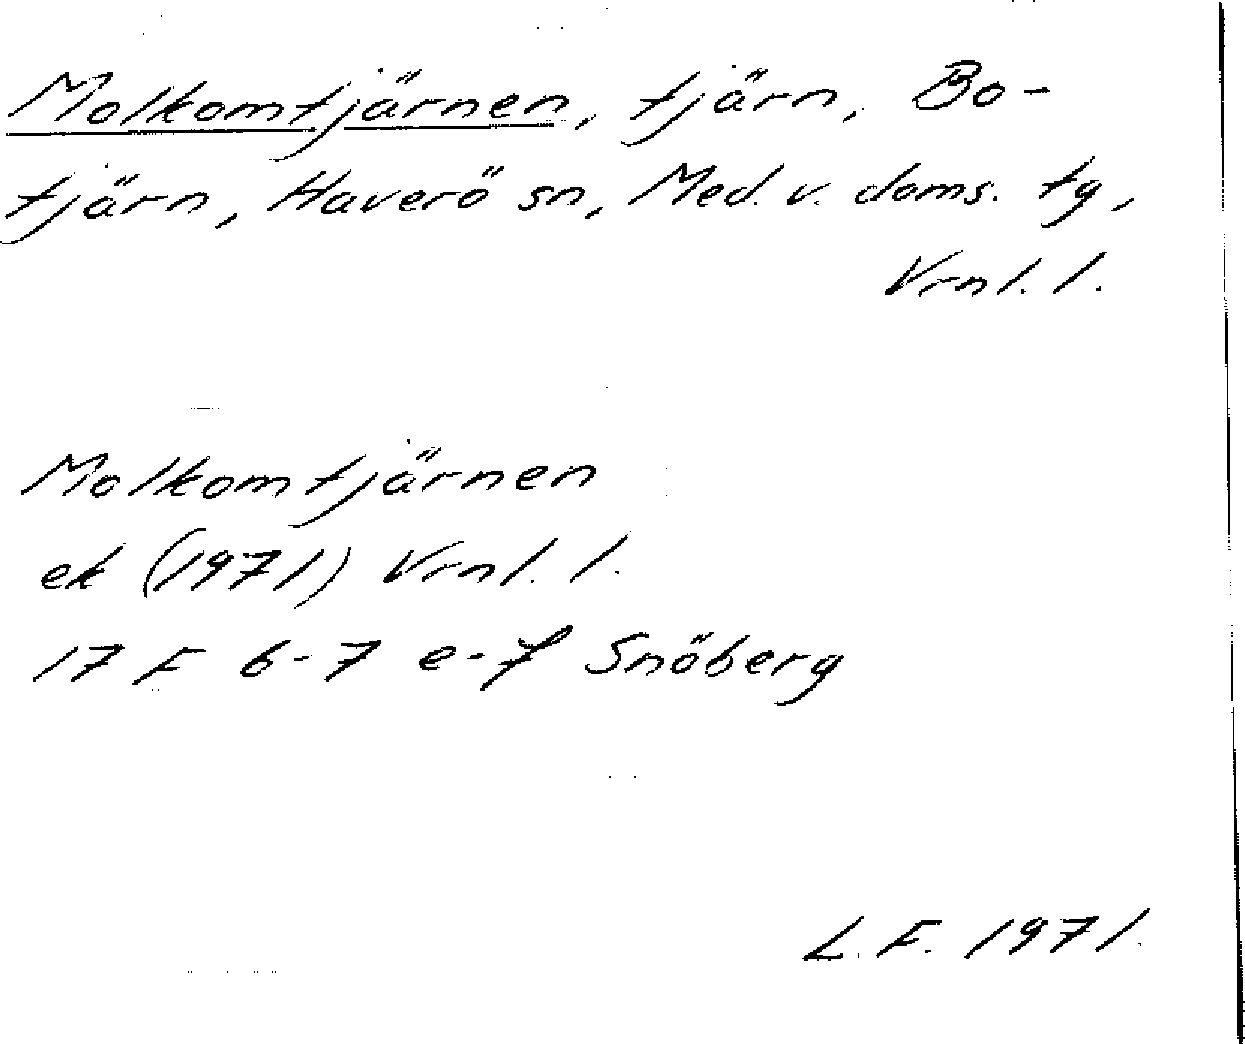 Molkomtjärnen, tjärn, Bo-
tjärn, Haverö sn, Med. v. doms. tg,
Vrnl. l.
Molkomtjärnen
ek (1971) Vrnl. l.
17 F 6-7 e-f Snöberg
L. F. 1971.